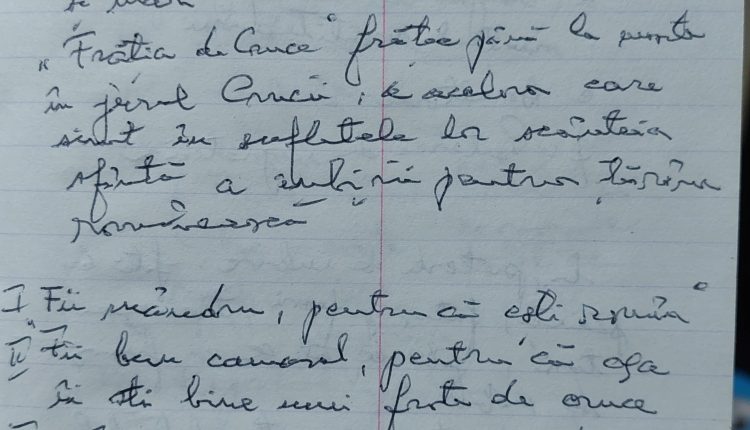 „Frăția de Cruce" frăție până la moarte
în jurul Crucii, e acelora care
simt în sufletele lor scânteia
sfântă a iubirii pentru țărâna
românească
I Fii mândru, pentru că ești român
II Fii bun camarad, pentru că așa
îi stă bine unui frate de cruce